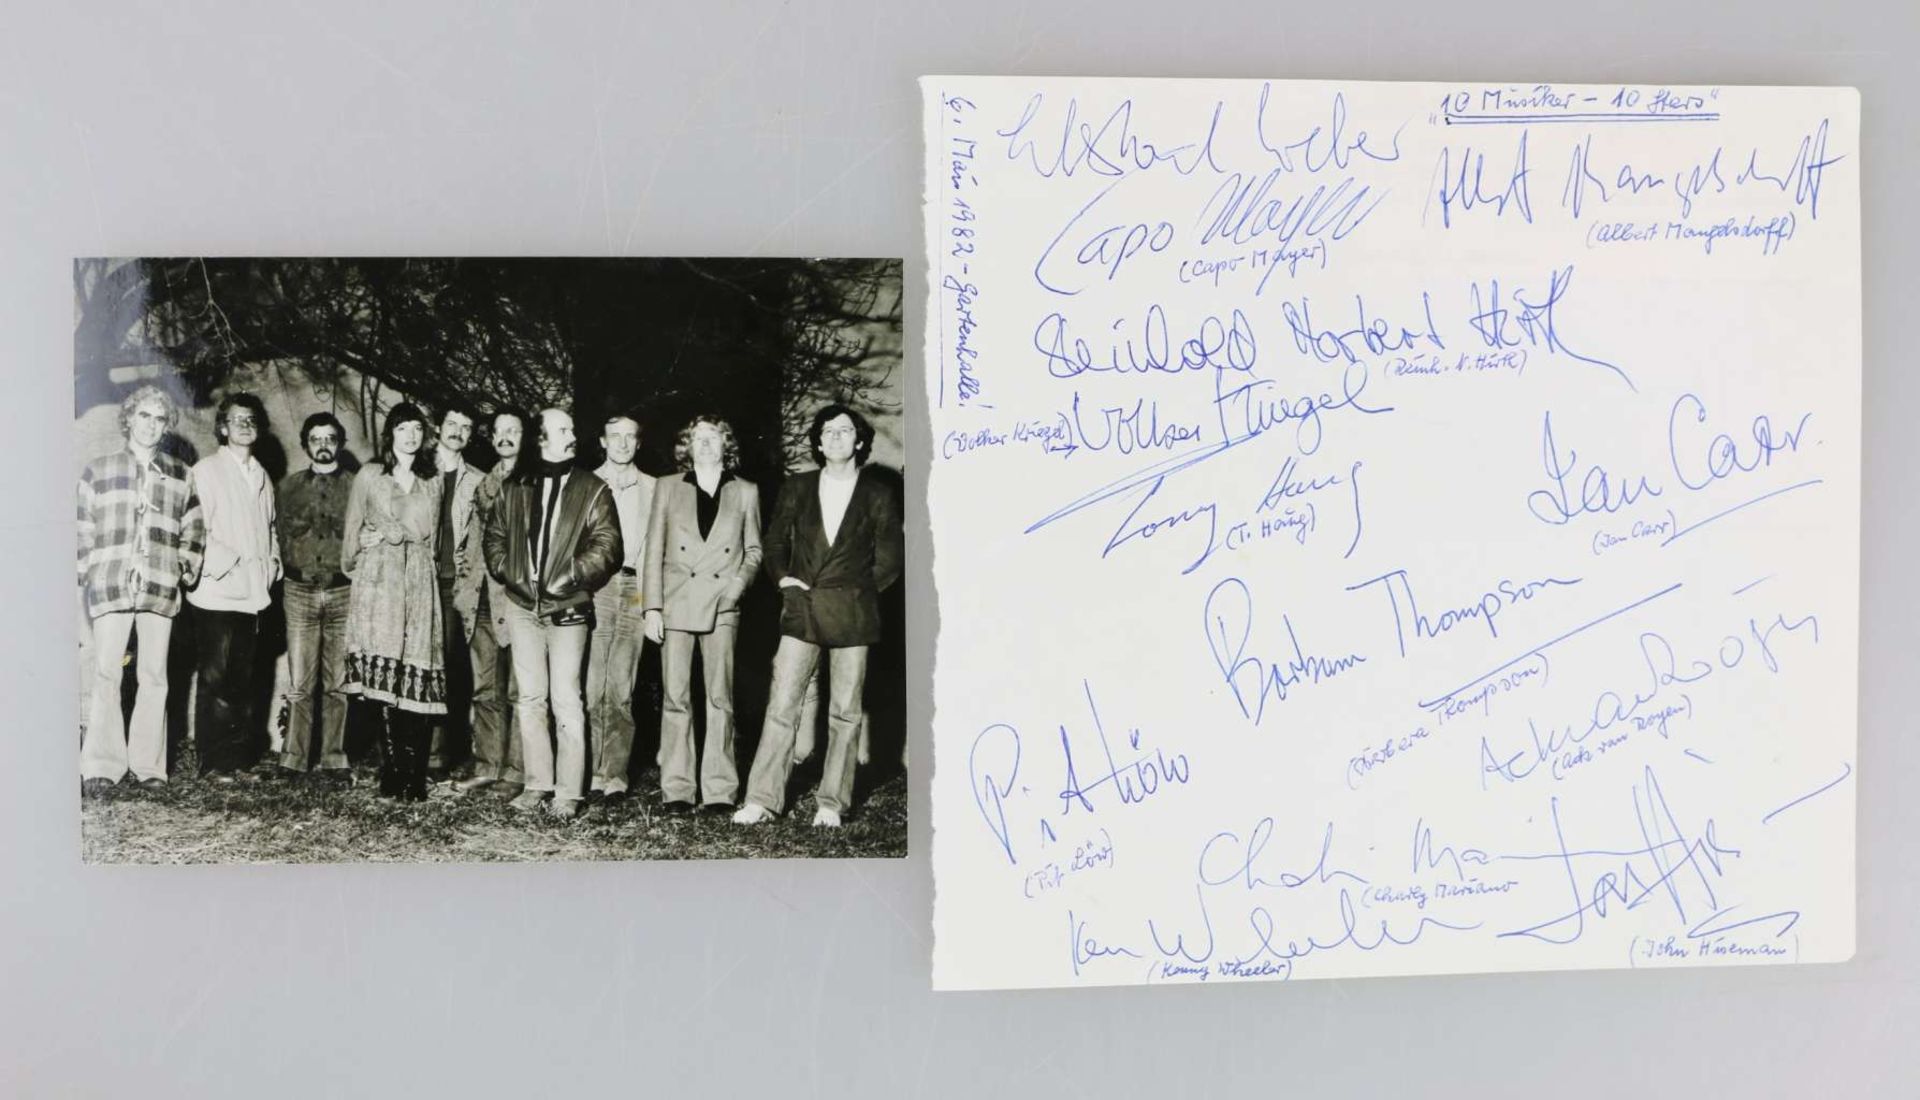 "10 Musiker - 10 Stars"
6. März 1982 - Gartenhalle!
Eberhard Weber
Albert Mangelsdorff
(Albert Mangelsdorff)
Capo Mayer
(Capo Mayer)
Reinhold Norbert Hirth
(Reinh. N. Hirth)
(Volker Kriegel) → Volker Kriegel
Tony Haug
(T. Haug)
Ian Carr
(Ian Carr)
Barbara Thompson
(Barbara Thompson)
Ack van Rooyen
(Ack van Royen)
Pit Löw
(Pit Löw)
Charlie Mariano
(Charly Mariano
Ken Wheeler
(Kenny Wheeler)
(John Hiseman)